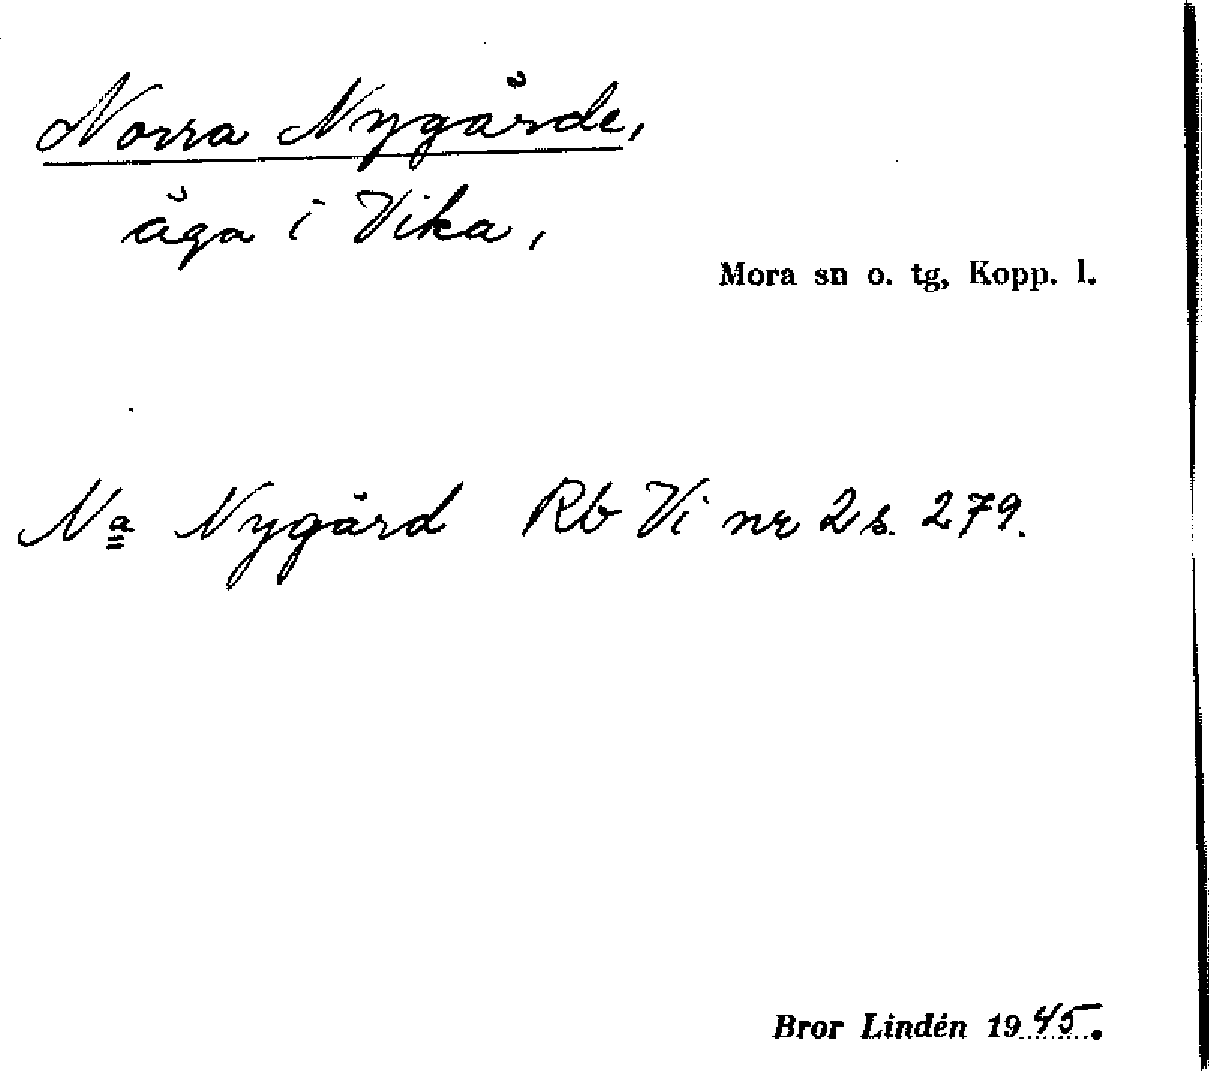 Norra Nygårde,
äga i Vika,
Mora sn o. tg, Kopp. l.
Na Nygärd Rb Vi nr 2 s. 279.
Bror Lindén 1945.